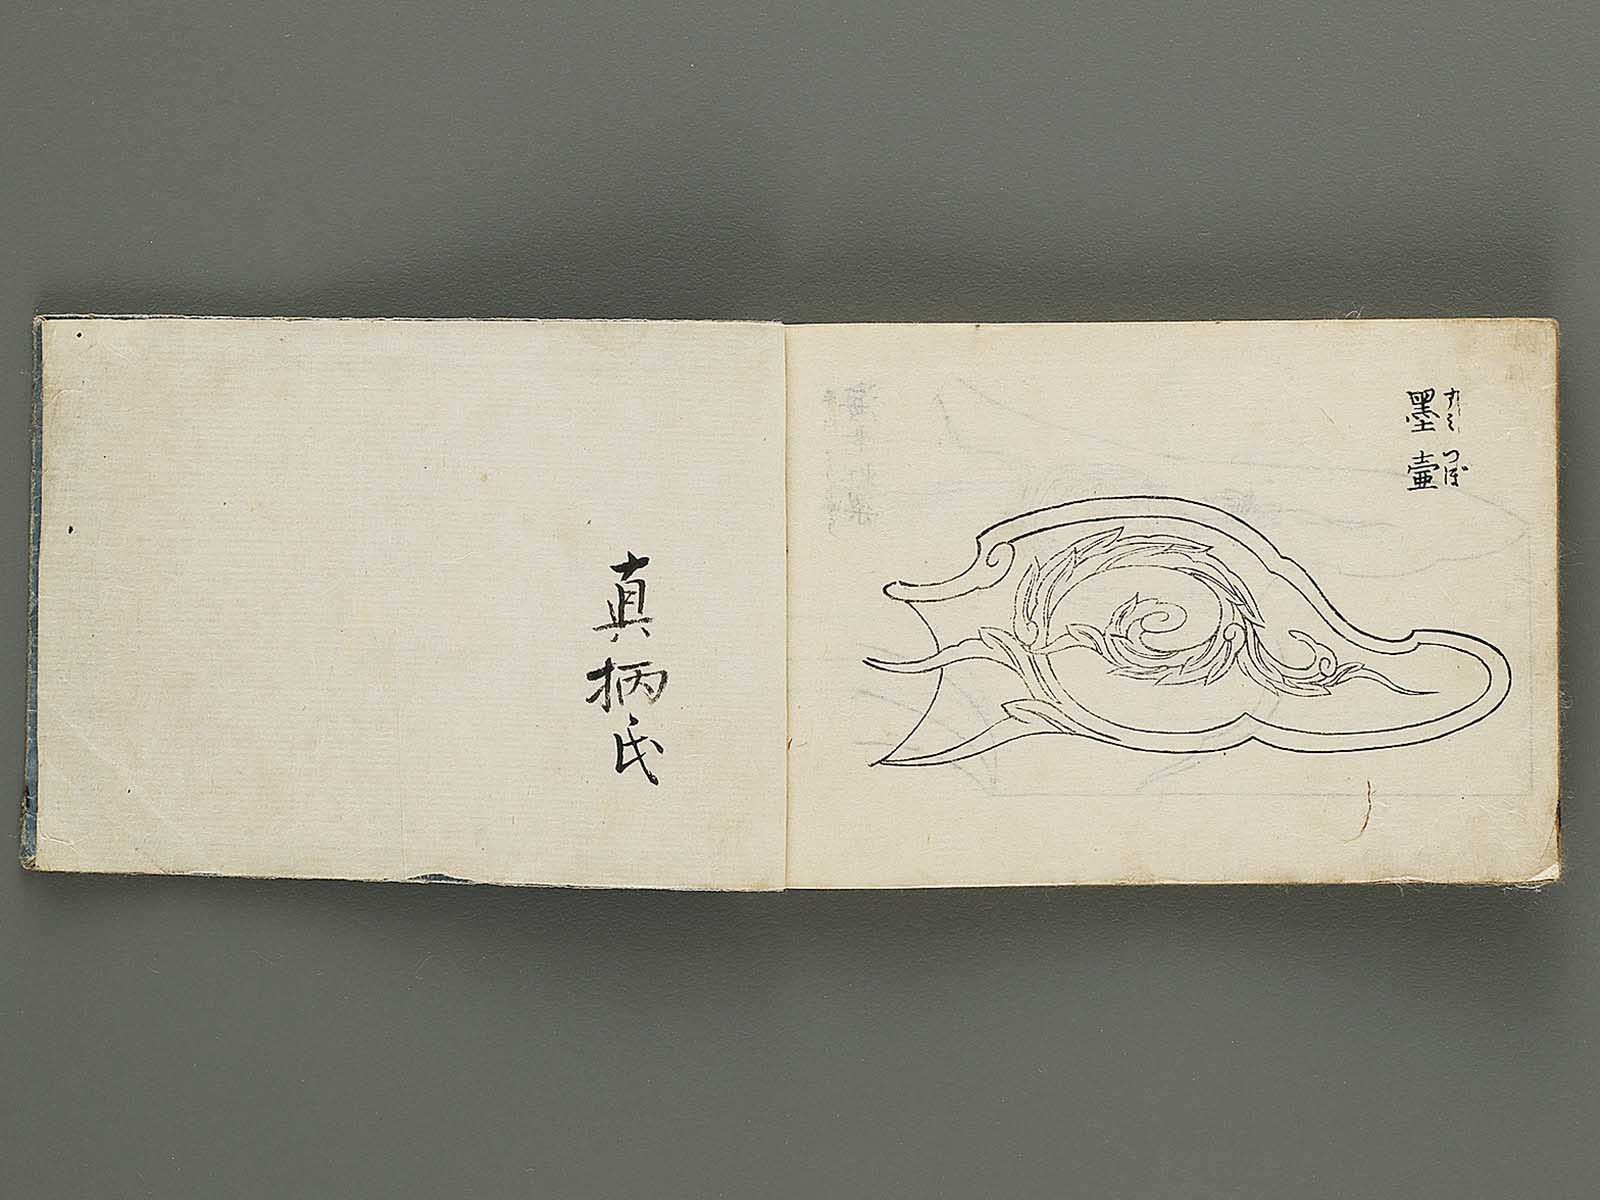 墨壷
すみつぼ
真柄氏